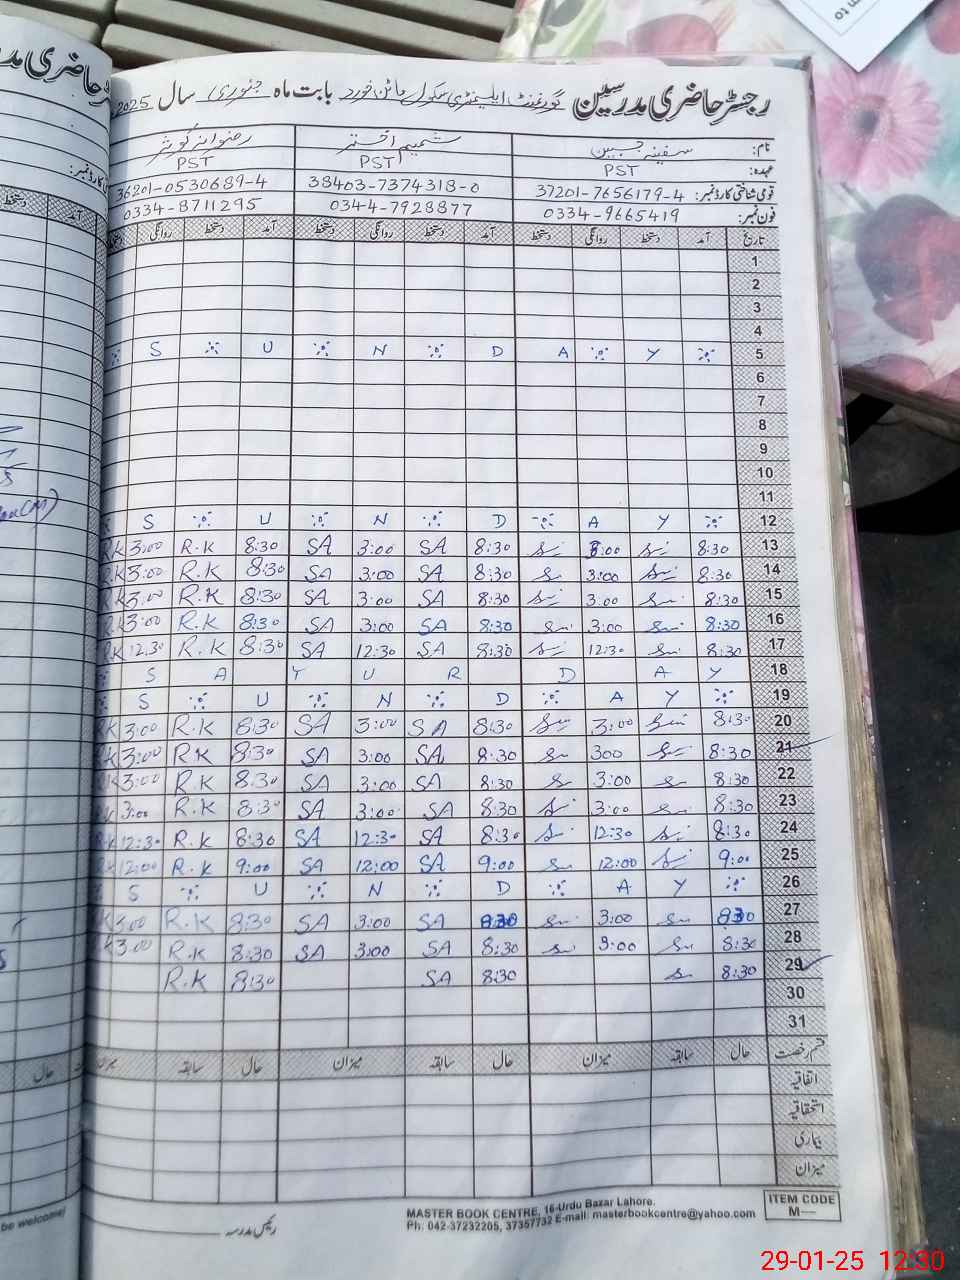 رجسٹر حاضری مدرسین گورنمنٹ ایلیمنٹری سکول خورد بابت ماہ جنوری سال 2025
نام: سفینہ جبین شمیم اختر رضوانہ کوثر
عہدہ: PST PST PST
قومی شناختی کارڈ نمبر: 37201-7656179-4 38403-7374318-0 36201-0530689-4
فون نمبر: 0334-9665419 0344-7928877 0334-8711295
تاریخ آمد دستخط روانگی دستخط آمد دستخط روانگی دستخط آمد دستخط روانگی دستخط
1
2
3
4
S U N D A Y 5
6
7
8
9
10
11
S U N D A Y 12
RK 3:00 R.K 8:30 SA 3:00 SA 8:30 3:00 8:30 13
RK 3:00 R.K 8:30 SA 3:00 SA 8:30 3:00 8:30 14
RK 3:00 R.K 8:30 SA 3:00 SA 8:30 3:00 8:30 15
RK 3:00 R.K 8:30 SA 3:00 SA 8:30 3:00 8:30 16
RK 12:30 R.K 8:30 SA 12:30 SA 8:30 12:30 8:30 17
S A T U R D A Y 18
S U N D A Y 19
RK 3:00 R.K 8:30 SA 3:00 SA 8:30 3:00 8:30 20
RK 3:00 RK 8:30 SA 3:00 SA 8:30 300 8:30 21
RK 3:00 R.K 8:30 SA 3:00 SA 8:30 3:00 8:30 22
RK 3:00 R.K 8:30 SA 3:00 SA 8:30 3:00 8:30 23
RK 12:30 R.K 8:30 SA 12:30 SA 8:30 12:30 8:30 24
RK 12:00 R.K 9:00 SA 12:00 SA 9:00 12:00 9:00 25
S U N D A Y 26
RK 3:00 R.K 8:30 SA 3:00 SA 8:30 3:00 830 27
RK 3:00 R.K 8:30 SA 3:00 SA 8:30 3:00 8:30 28
R.K 8:30 SA 8:30 8:30 29
30
31
قسم رخصت حال سابقہ میزان حال سابقہ میزان حال سابقہ میزان
اتفاقیہ
استحقاقیہ
بیماری
میزان
رئیس مدرسہ
MASTER BOOK CENTRE, 16-Urdu Bazar Lahore.
Ph: 042-37232205, 37357732 E-mail: masterbookcentre@yahoo.com
ITEM CODE
M—
be welcome)
29-01-25 12:30